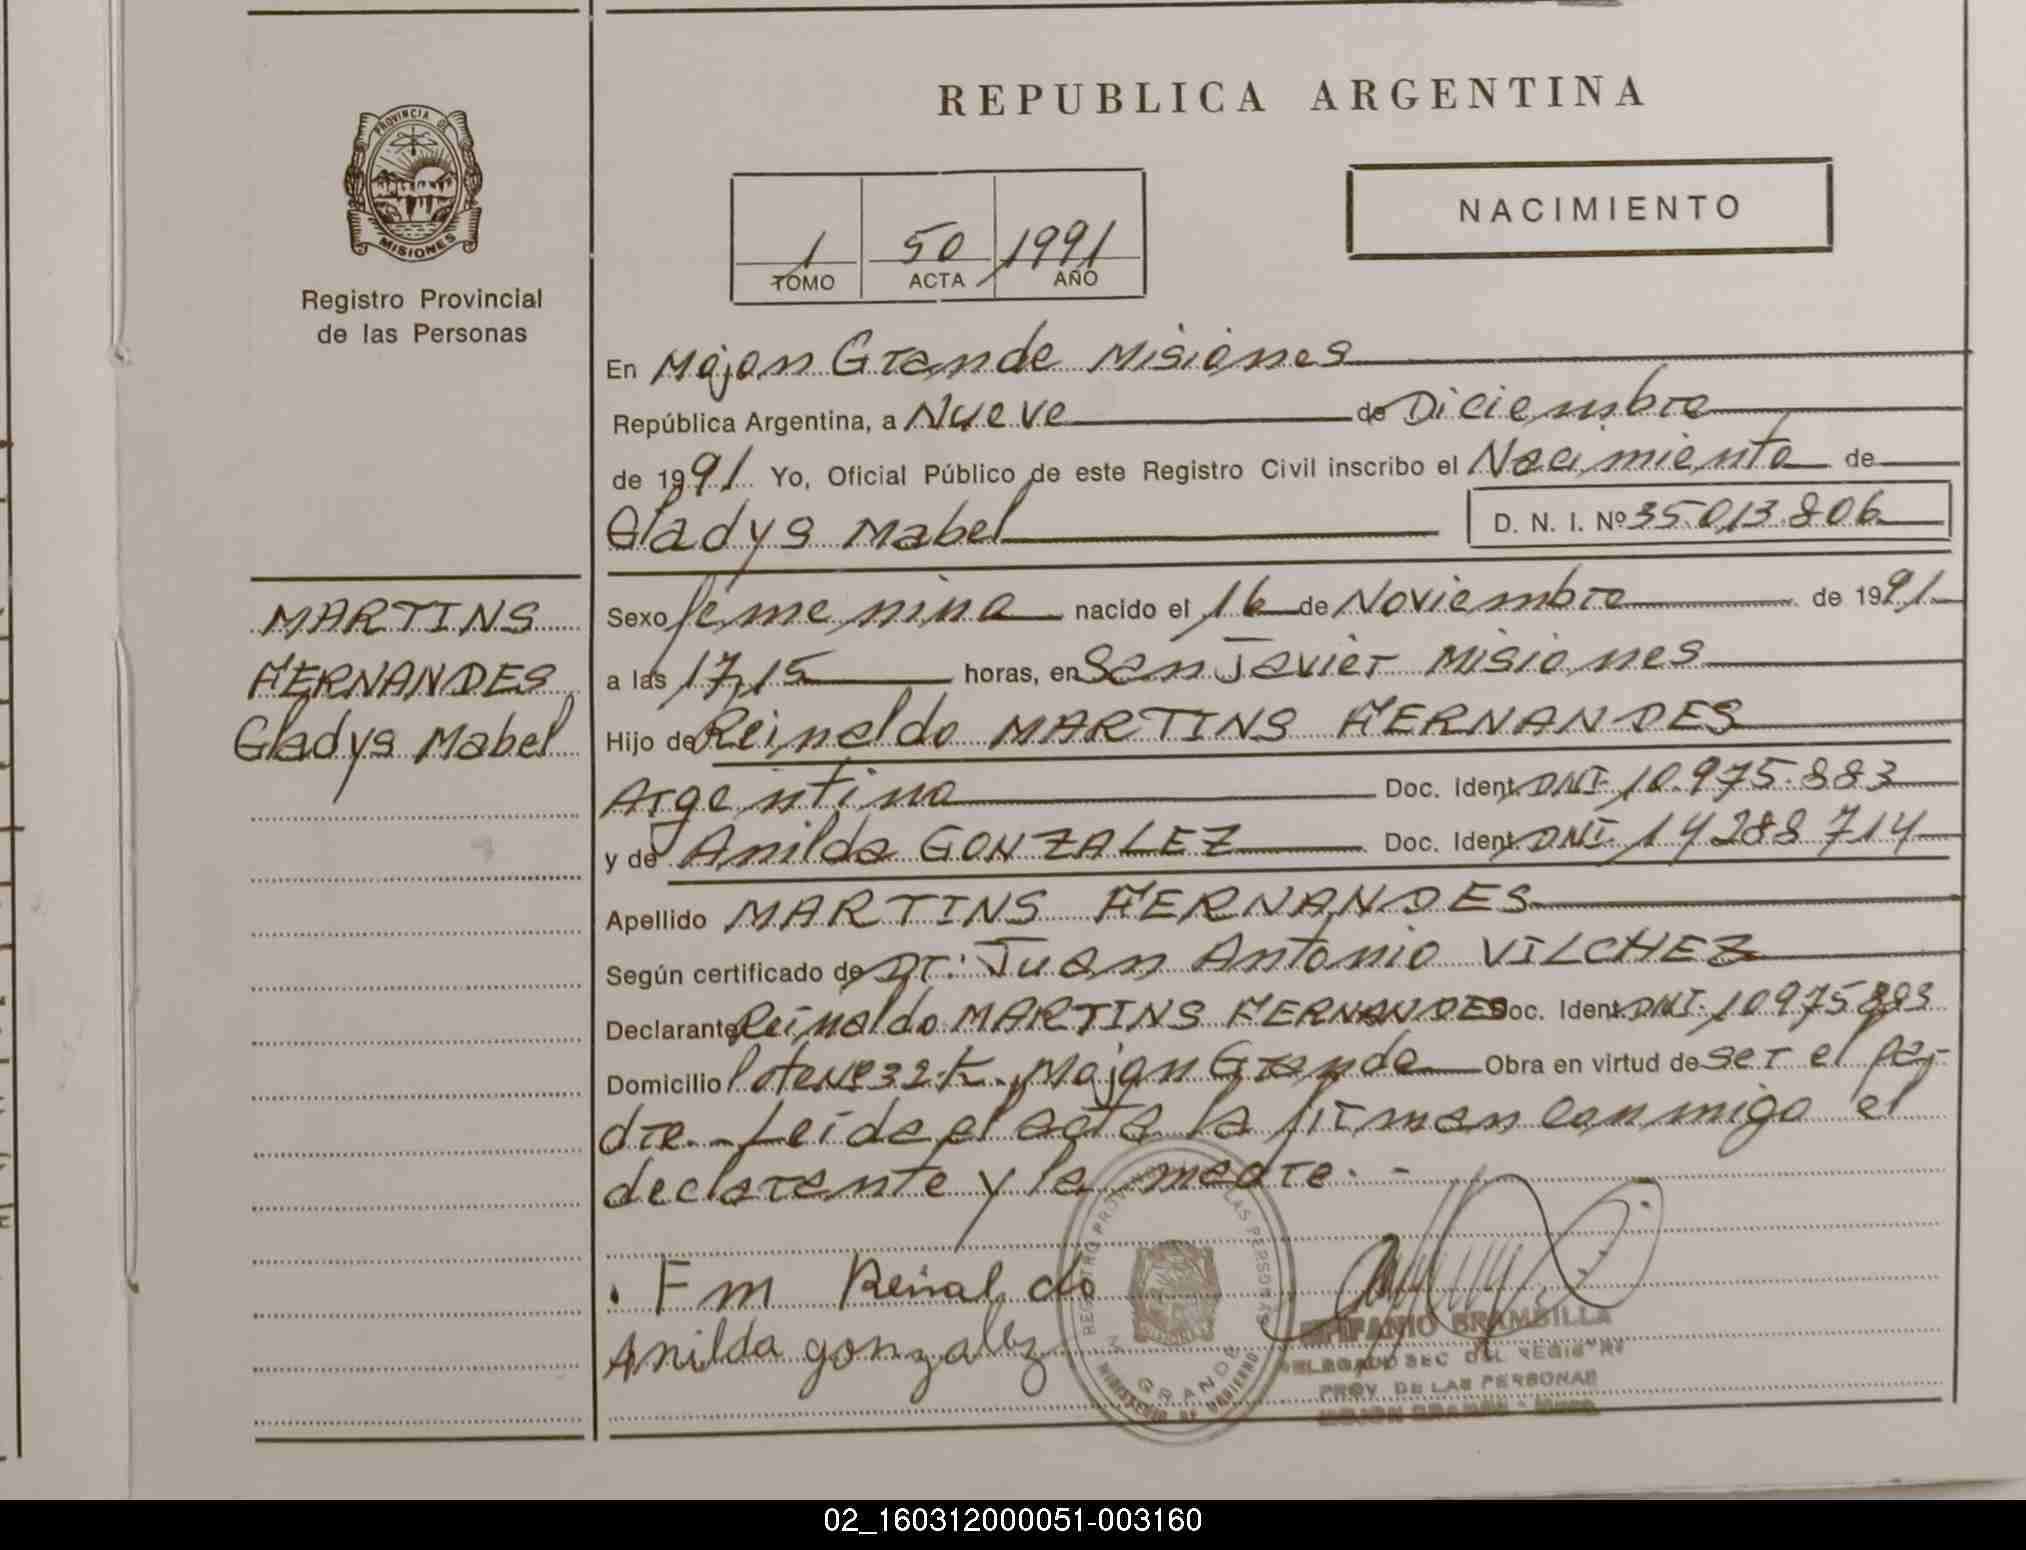 REPUBLICA ARGENTINA
PROVINCIA DE
MISIONES
Registro Provincial
de las Personas
NACIMIENTO
1 50 1991
TOMO ACTA AÑO
En Mojon Grande Misiones
República Argentina, a Nueve de Diciembre
de 1991 Yo, Oficial Público de este Registro Civil inscribo el Nacimiento de
Gladys Mabel D. N. I. Nº 35.013.806
MARTINS
FERNANDES
Gladys Mabel
Sexo femenino nacido el 16 de Noviembre de 1991
a las 17,15 horas, en San Javier Misiones
Hijo de Reinaldo MARTINS FERNANDES
Argentino Doc. Ident DNI. 10.975.883
y de Anilda GONZALEZ Doc. Ident DNI. 14288714
Apellido MARTINS FERNANDES
Según certificado de Dr: Juan Antonio VILCHEZ
Declarante Reinaldo MARTINS FERNANDES Doc. Ident DNI. 10975883
Domicilio lote Nº 32-K. Mojon Grande Obra en virtud de ser el pa-
dre.- Leida el acta la firman conmigo el
declarante y la madre.-
. F m Reinaldo
Anilda gonzalez
REGISTRO PROVINCIAL DE LAS PERSONAS
M. GRANDE
MINISTERIO DE GOBIERNO
EPIFANIO BRAMBILLA
DELEGADO SEC DEL REGISTRO
PROV. DE LAS PERSONAS
MOJON GRANDE - Mnes.
02_160312000051-003160